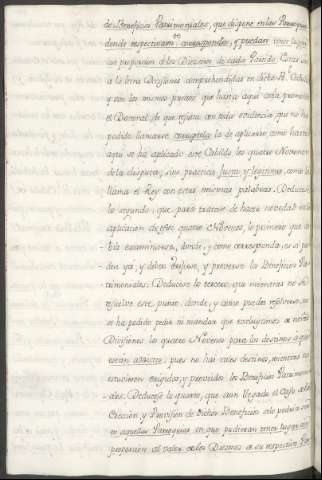 de Beneficios Patrimoniales, que dispone en las Parroquias
donde respectivam.te corresponden, y puedan tener lugar
con proporcion a los Diezmos de cada
a la letra Divisiones comprehendidas en dicha R. Cedula
y son los mismos puntos que hasta aqui
el Decanal, de que resulta con toda evidencia que no ha
podido llamarse corruptela la de aplicarse como hasta
aqui se ha aplicado este Cabildo los quatro Novenos
de la disputa, sino practica Justa, y legitima, como la
llama el Rey con estas mismas palabras. Deducese
lo segundo, que para tratar de hacer novedad en la
aplicacion de estos quatro Novenos, lo primero que de-
bia examinarse, donde, y como corresponda, es
y deben, y proveerse los Beneficios Pa-
trimoniales. Deducese lo tercero, que mientras no se
resuelve este punto, donde, y como puedan
se ha podido pedir ni mandar que excluyamos de nuestras
Divisiones los quatro Novenos para los destinos a que
estàn afectos, pues no hai tales destinos, mientras no
estuvieren erigidos, y proveidos los Beneficios Patrimoni-
ales. Deducese lo quarto, que aun llegado el Caso de la
Ereccion, y Provision de dichos Beneficios solo podria
en aquellas Parroquias en que pudieran tener lugar con
proporcion al valor de los Diezmos de su respectiva